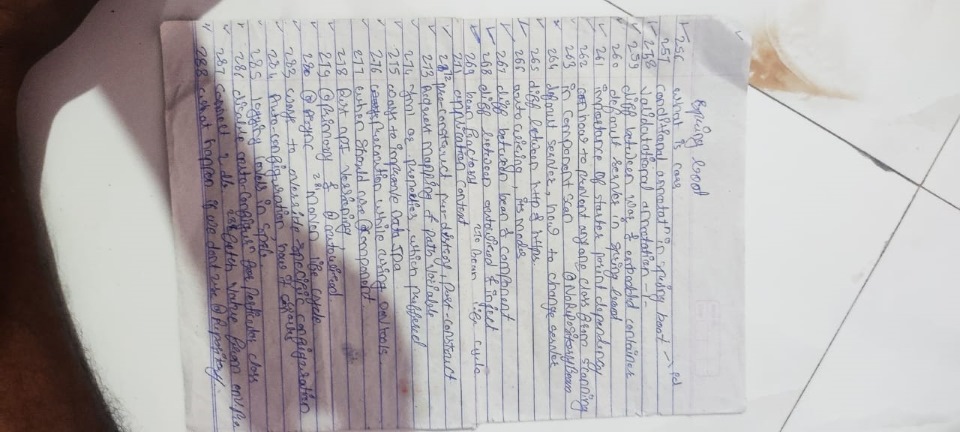 Spring boot
256 what is cors
257 conditional annotatn in spring boot - pd
258 validatational annotation -1-
259 diff between war & embedded container
260 default server in spring board
261 importance of starter parint dependency
262 how to prevent anyone class Beam scanning
263 in component scan @NoRepositoryBean
264 default server, how to change server
265 diff between http & https.
266 autowiring, its modes
267 diff between bean & component
268 diff between autowired & inject
269 bean factory 270 Bean life cycle
271 application context
272 pre-construct pre-destory, Post-construct
273 Request mapping & Path variable
274 yml or properties, which preffered
275 ways to improve Data JPA
276 precaution while using Devtools
277 when should use @component
278 Rest API Versioning
279 @Primary & @autowired.
280 @Async 281 Maven life cycle
283 ways to override specific configuration
284 Auto-configuration how it works
285 logging levels in
286 disable auto-configurn for perticular class
287 connect 2 db. fetch value from env. 
288 what happen if we dont use @Repository.